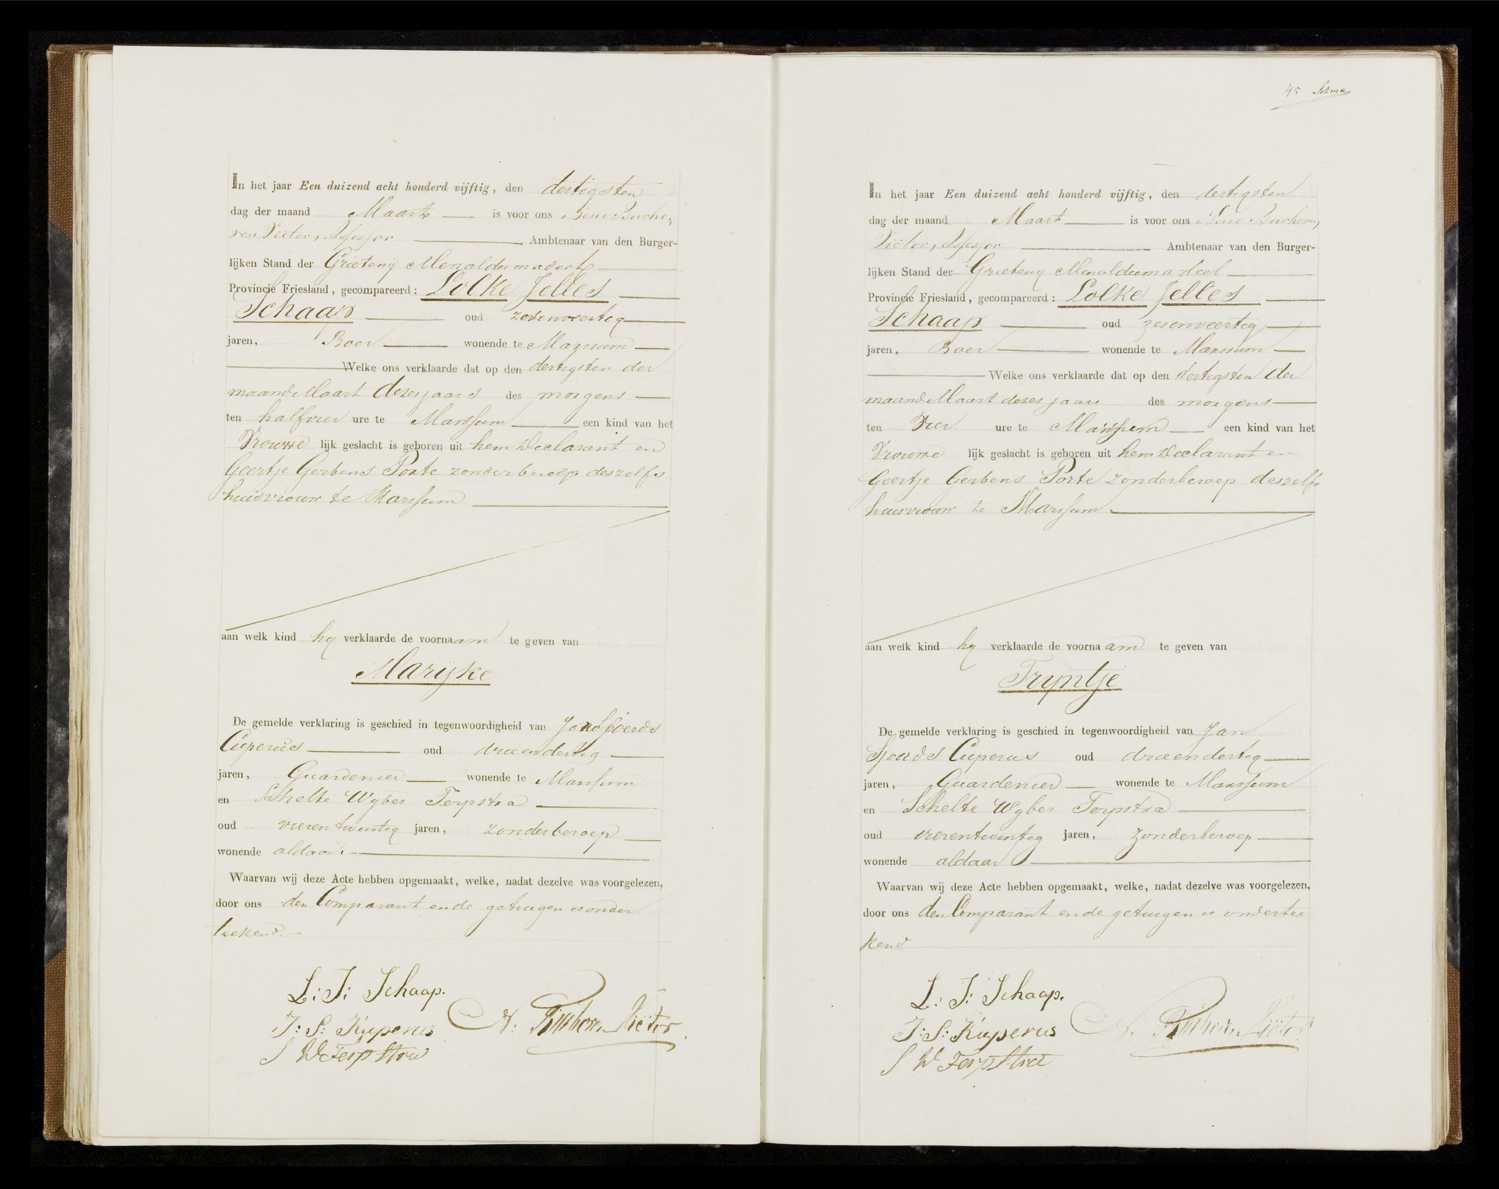 In het jaar Een duizend acht honderd vijftig, den dertigsten
dag der maand Maart is voor ons
Assessor Ambtenaar van den Burger-
lijken Stand der Grietenij Menaldumadeel
Provincie Friesland, gecompareerd: Lolke Jelles
Schaap oud zesenveertig
jaren, Boer wonende te Marssum
Welke ons verklaarde dat op den dertigsten der
maand Maart dezes jaars des morgens
ten half vier ure te Marssum een kind van het
Vrouwe lijk geslacht is geboren uit hem Declarant en
Geertje Gerbens Porte zonder beroep deszelfs
huisvrouw te Marssum
aan welk kind hy verklaarde de voornaam te geven van
Marijke
De gemelde verklaring is geschied in tegenwoordigheid van Jan Sjoerds
Cuperus oud drieendertig
jaren, Guardenier wonende te Marssum
en Schelte Wybes Terpstra
oud vierentwintig jaren, zonder beroep
wonende aldaar
Waarvan wij deze Acte hebben opgemaakt, welke, nadat dezelve was voorgelezen,
door ons den Comparant en de getuigen is onder
teekend.
L: J: Schaap.
J: S: Kuperus
S W Terpstra
45
In het jaar Een duizend acht honderd vijftig, den dertigsten
dag der maand Maart is voor ons
Assessor Ambtenaar van den Burger-
lijken Stand der Grietenij Menaldumadeel
Provincie Friesland, gecompareerd: Lolke Jelles
Schaap oud zesenveertig
jaren, Boer wonende te Marssum
Welke ons verklaarde dat op den dertigsten der
maand Maart dezes jaars des morgens
ten Vier ure te Marssum een kind van het
Vrouwe lijk geslacht is geboren uit hem Declarant en
Geertje Gerbens Porte zonder beroep deszelfs
huisvrouw te Marssum
aan welk kind hy verklaarde de voornaam te geven van
Tryntje
De gemelde verklaring is geschied in tegenwoordigheid van Jan
Sjoerds Cuperus oud drieendertig
jaren, Guardenier wonende te Marssum
en Schelte Wybes Terpstra
oud vierentwintig jaren, zonder beroep
wonende aldaar
Waarvan wij deze Acte hebben opgemaakt, welke, nadat dezelve was voorgelezen,
door ons den Comparant en de getuigen is ondertee
kend
L: J: Schaap.
J: S: Kuperus
S W Terpstra